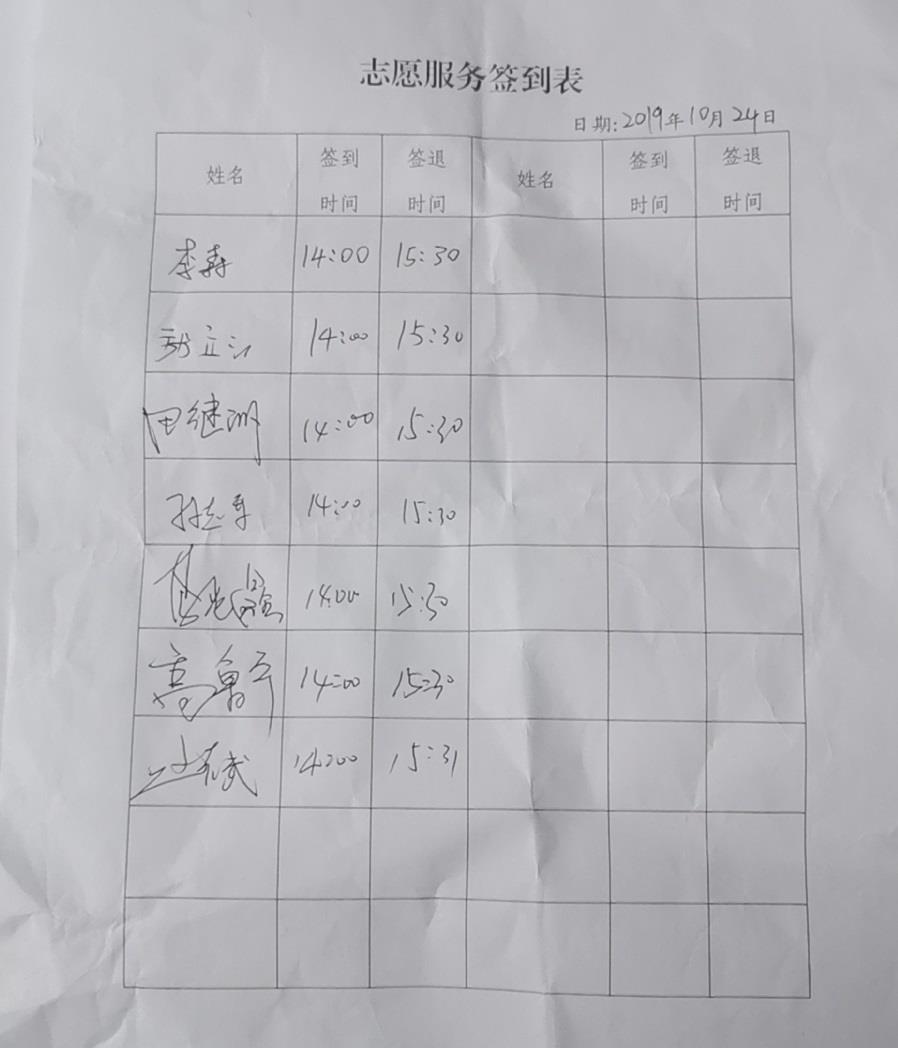 志愿服务签到表
日期:2019年10月24日
姓名 签到时间 签退时间 姓名 签到时间 签退时间
李寿 14:00 15:30
立 14:00 15:30
田继洲 14:00 15:30
孙志军 14:00 15:30
14:00 15:30
高 平 14:00 15:30
武 14:00 15:31